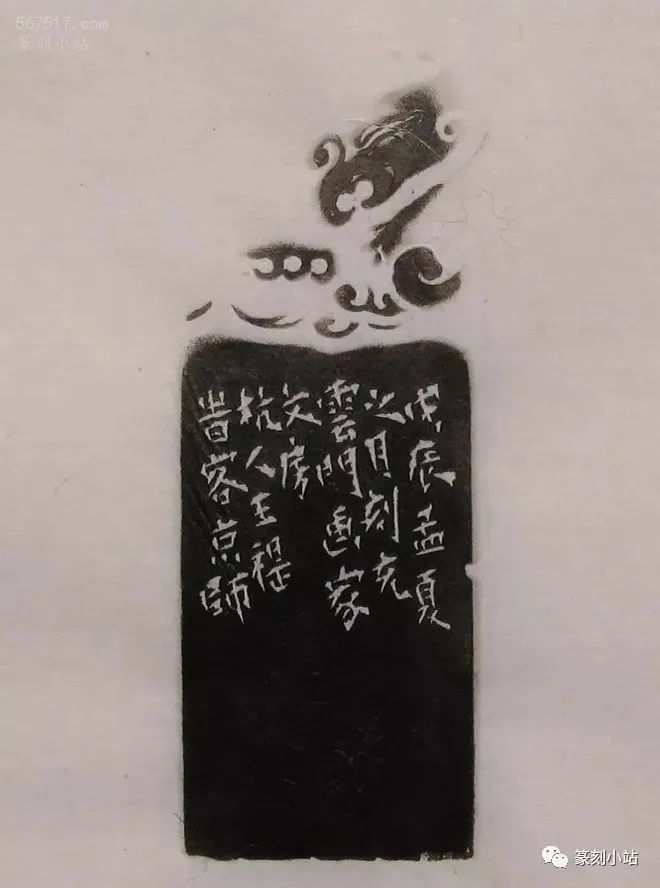 567517.com
篆刻小站
戊辰孟夏
之月刻充
雲門画家
文房
杭人王禔
昔客京師
篆刻小站